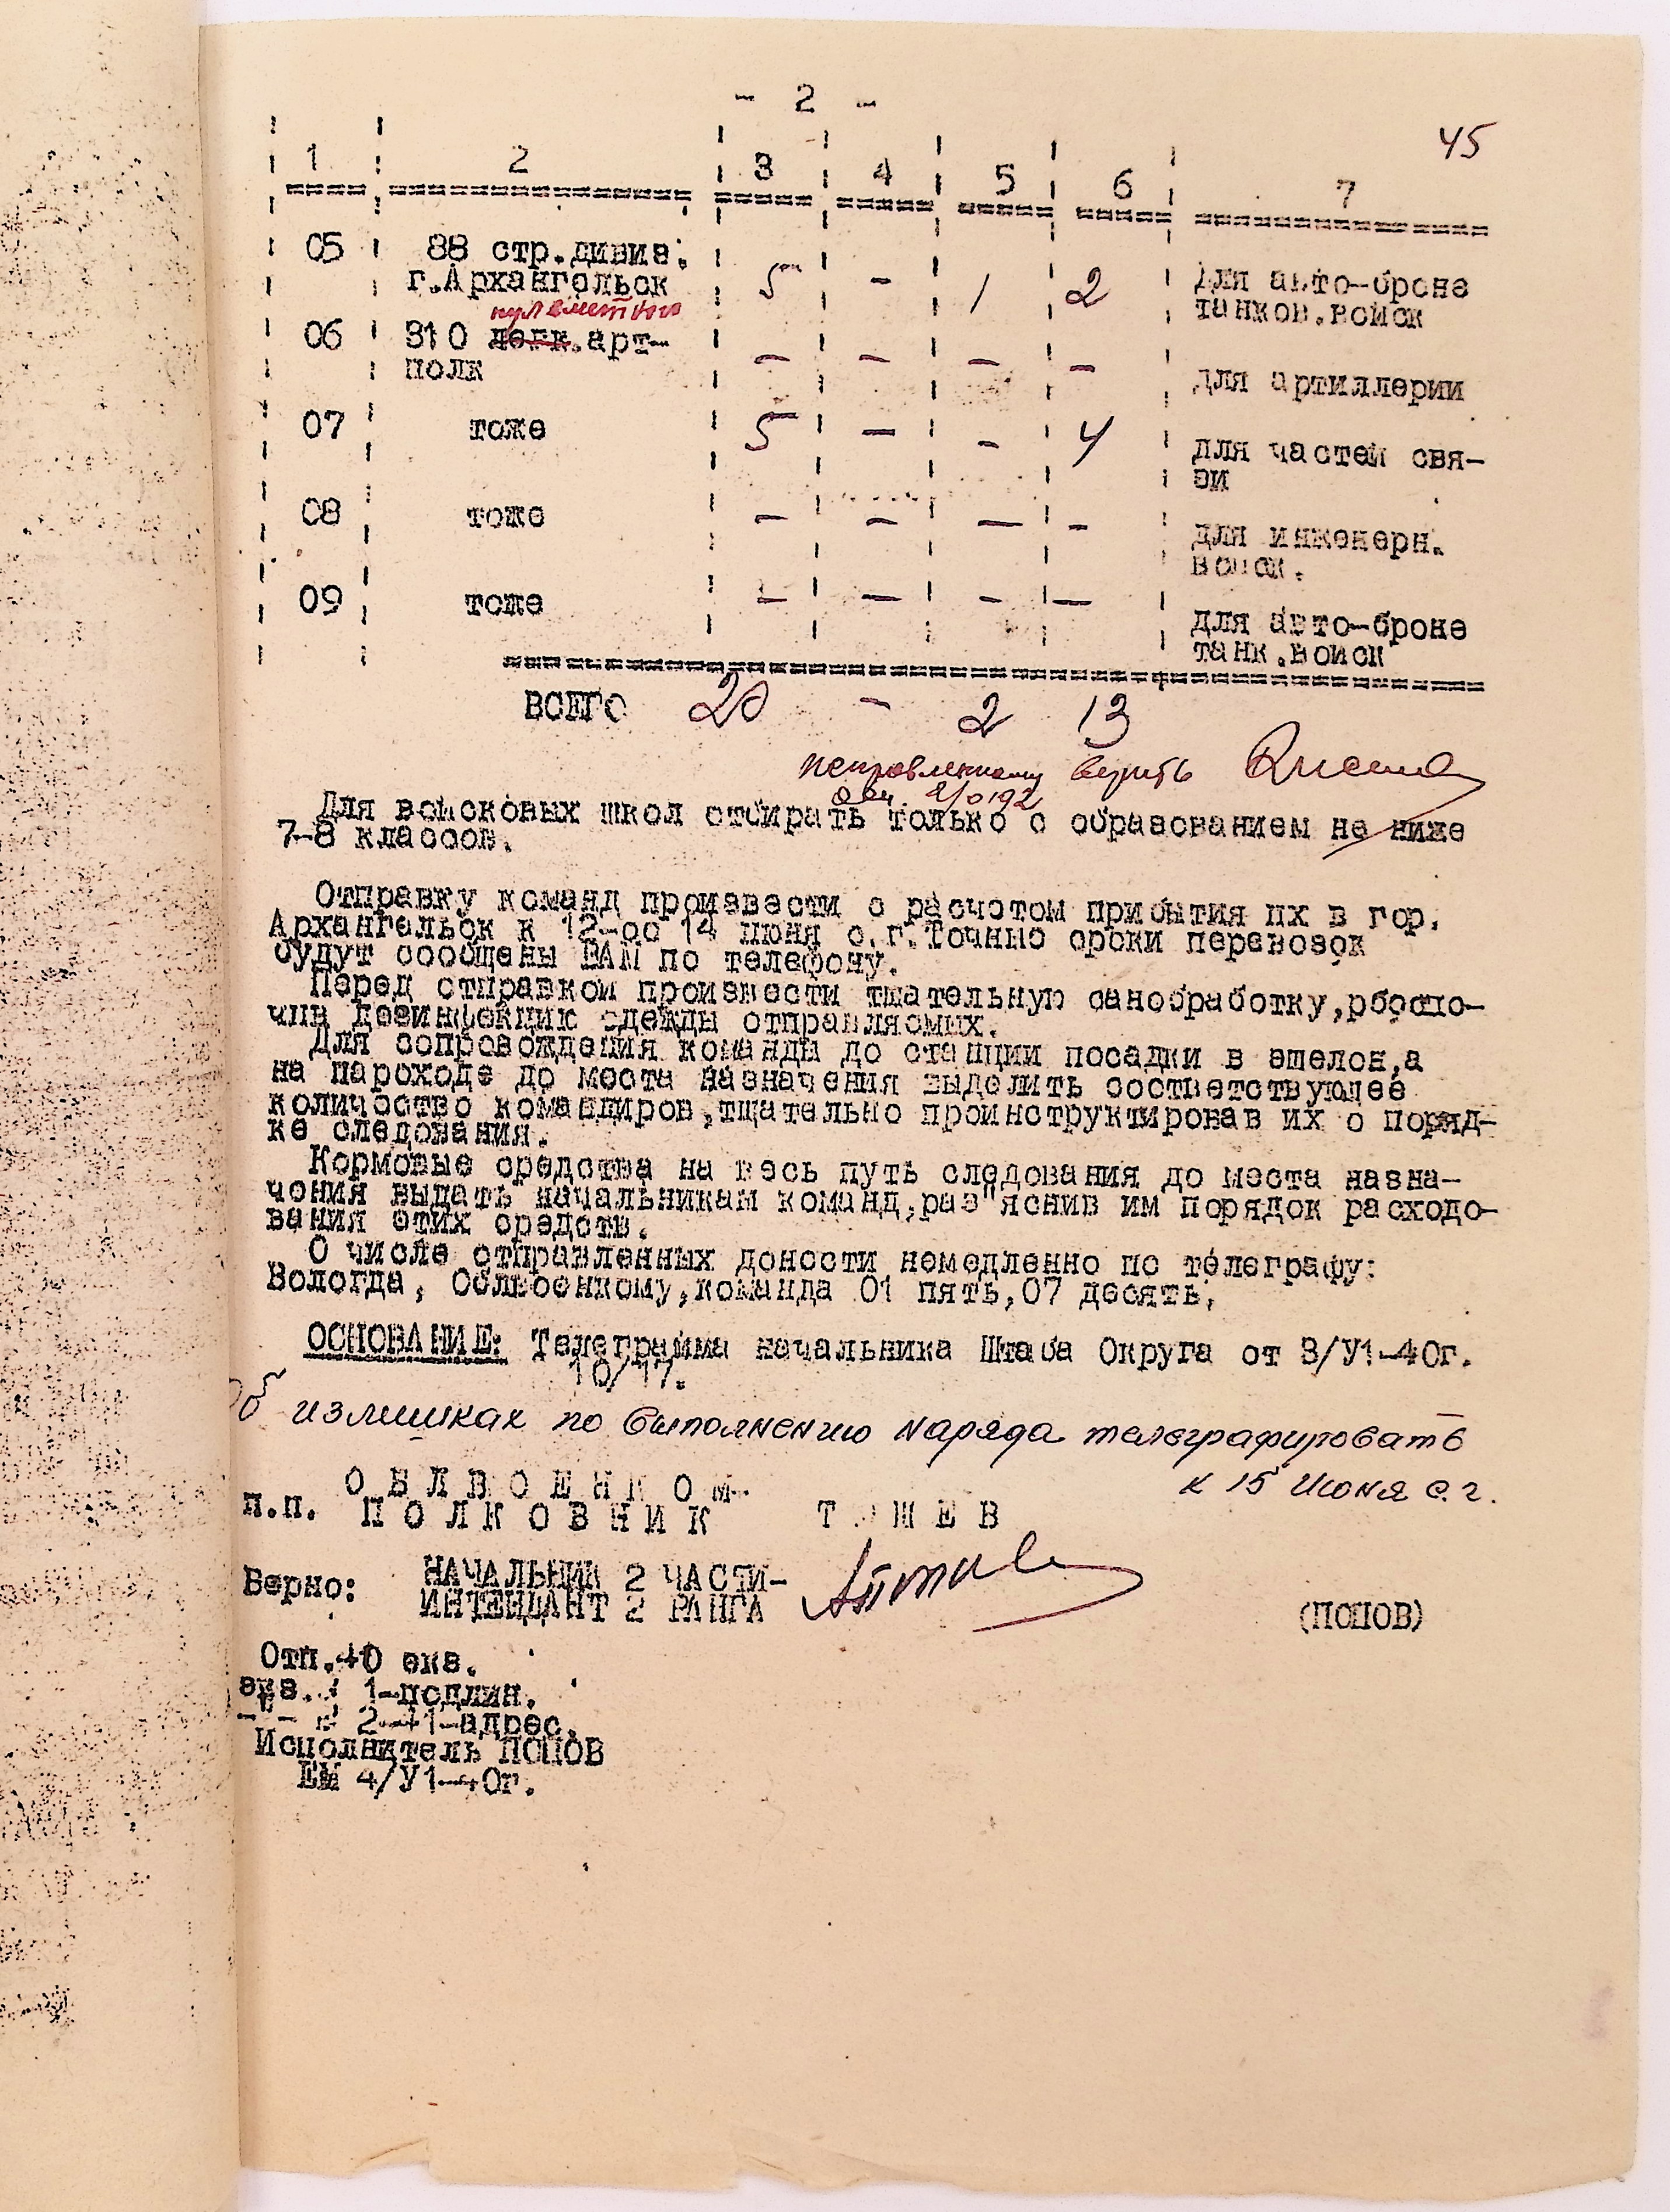 - 2 -
45
1 2 3 4 5 6 7
05 88 стр.дивиз. 5 - 1 2 Для авто-броне
г.Архангельск танков.войск
пулеметный
06 310 легк.арт- - - - - для артиллерии
полк
07 тоже 5 - - 4 для частей свя-
зи
08 тоже - - - - для инженерн.
войск.
09 тоже - - - - для авто-броне
танк.войск
ВСЕГО 20 - 2 13
исправленному верить
Для войсковых школ отбирать только с образованием не ниже
7-8 классов.
Отправку команд произвести с расчетом прибытия их в гор.
Архангельск к 12-00 14 июня с.г. Точные сроки перевозок
будут сообщены ВАМ по телефону.
Перед отправкой произвести тщательную санобработку,
дезинфекцию одежды отправляемых.
Для сопровождения команды до станции посадки в эшелон,а
на пароходе до места назначения выделить соответствующее
количество командиров,тщательно проинструктировав их о поряд-
ке следования.
Кормовые средства на весь путь следования до места назна-
чения выдать начальникам команд,раз"яснив им порядок расходо-
вания этих средств.
О числе отправленных донести немедленно по телеграфу:
Вологда, Облвоенкому,команда 01 пять,07 десять.
ОСНОВАНИЕ: Телеграмма начальника Штаба Округа от 3/У1-40г.
10/17.
Об излишках по выполнению наряда телеграфировать
к 15 Июня с.г.
ОБЛВОЕНКОМ-
п.п. ПОЛКОВНИК Т ШЕВ
Верно: НАЧАЛЬНИК 2 ЧАСТИ-
ИНТЕНДАНТ 2 РАНГА (ПОПОВ)
Отп.40 экз.
экз. 1-подлин.
-"- 2-41-адрес.
Исполнитель ПОПОВ
ЕМ 4/У1-40г.